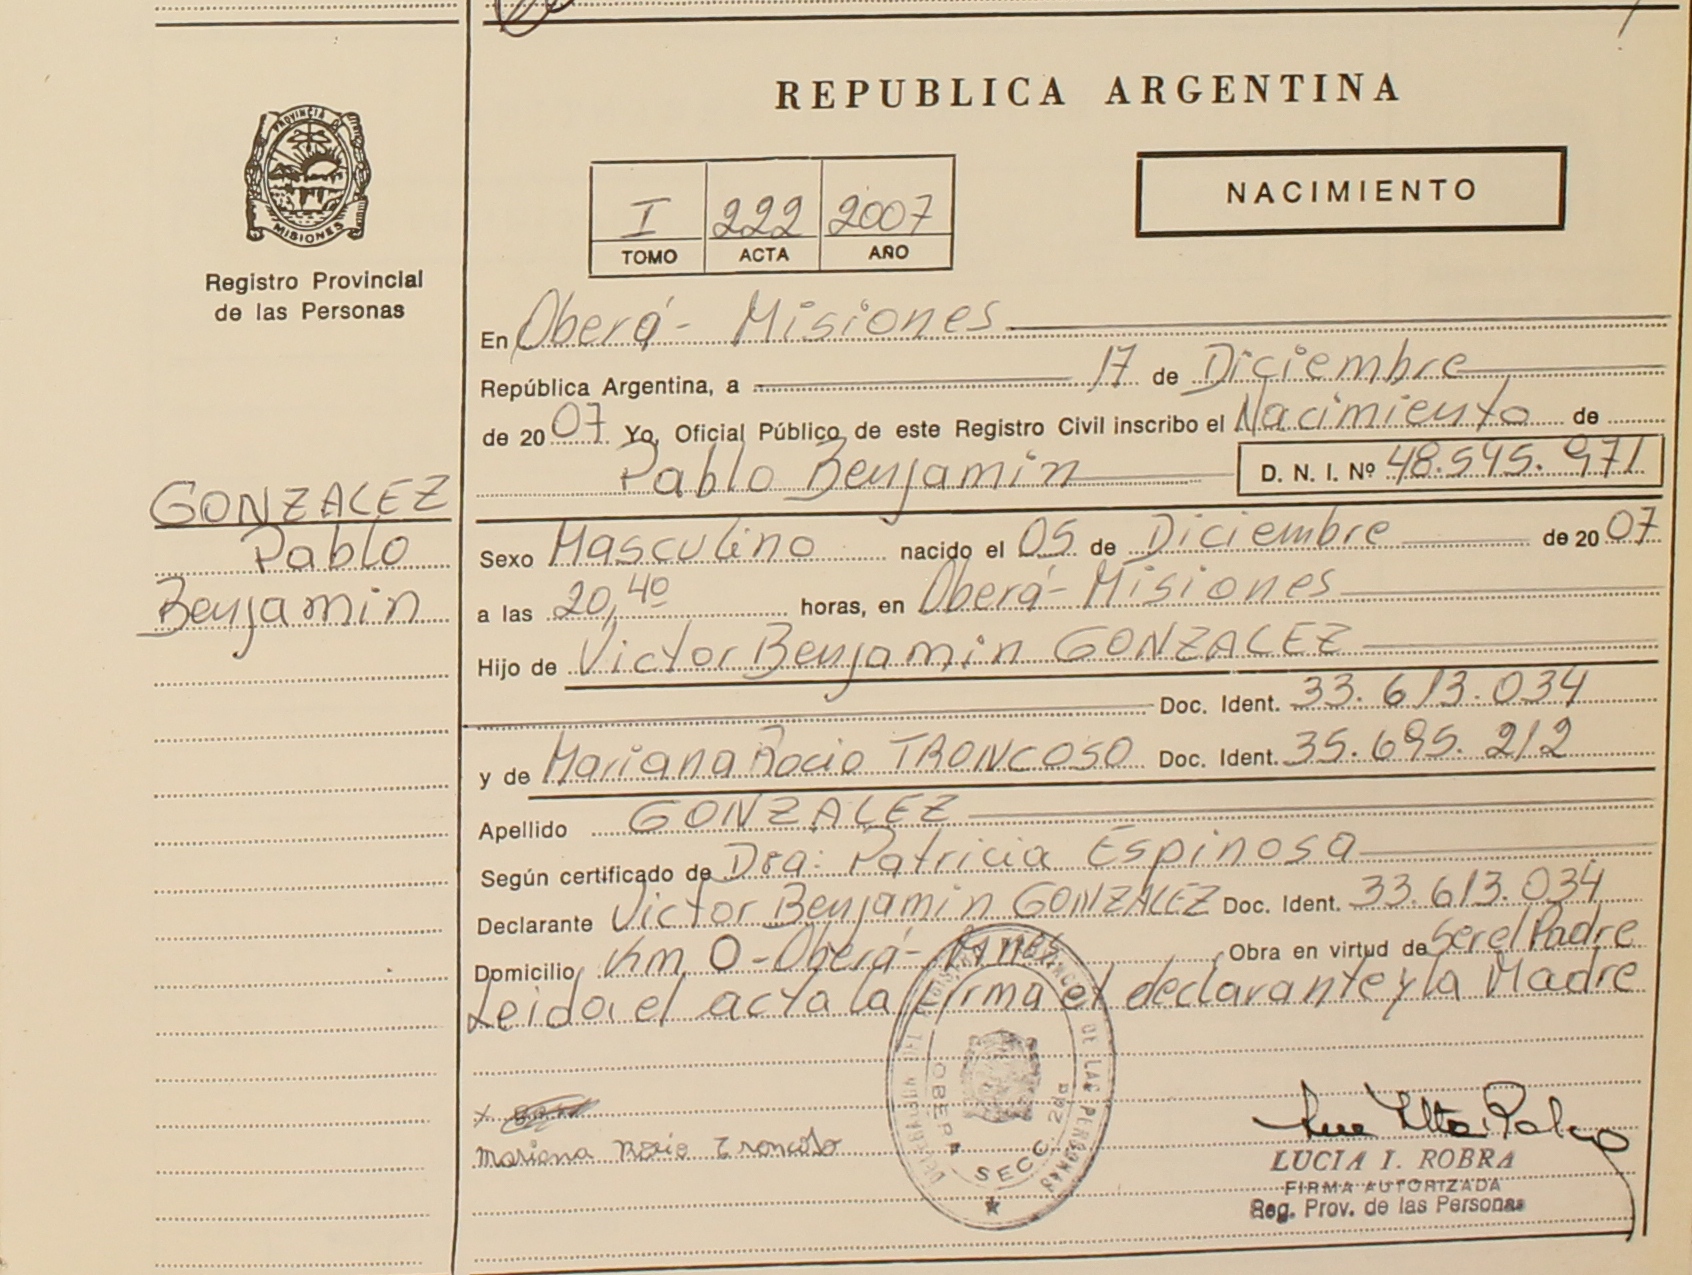 REPUBLICA ARGENTINA
PROVINCIA DE
MISIONES
Registro Provincial
de las Personas
NACIMIENTO
I 222 2007
TOMO ACTA AÑO
En Oberá - Misiones
República Argentina, a 17 de Diciembre
de 2007 Yo, Oficial Público de este Registro Civil inscribo el Nacimiento de
Pablo Benjamin D. N. I. Nº 48.545.971
GONZALEZ
Pablo
Benjamin
Sexo Masculino nacido el 05 de Diciembre de 2007
a las 20,40 horas, en Oberá - Misiones
Hijo de Victor Benjamin GONZALEZ
Doc. Ident. 33.613.034
y de Mariana Rocio TRONCOSO Doc. Ident. 35.695.212
Apellido GONZALEZ
Según certificado de Dra: Patricia Espinosa
Declarante Victor Benjamin GONZALEZ Doc. Ident. 33.613.034
Domicilio Km 0 - Oberá - Mnes. Obra en virtud de Ser el Padre
Leida el acta la firma el declarante y la Madre
Mariana Rocio Troncoso
DELEGACION DEL REGISTRO PROVINCIAL DE LAS PERSONAS
OBERA SECC. 2da
LUCIA I. ROBRA
FIRMA AUTORIZADA
Reg. Prov. de las Personas